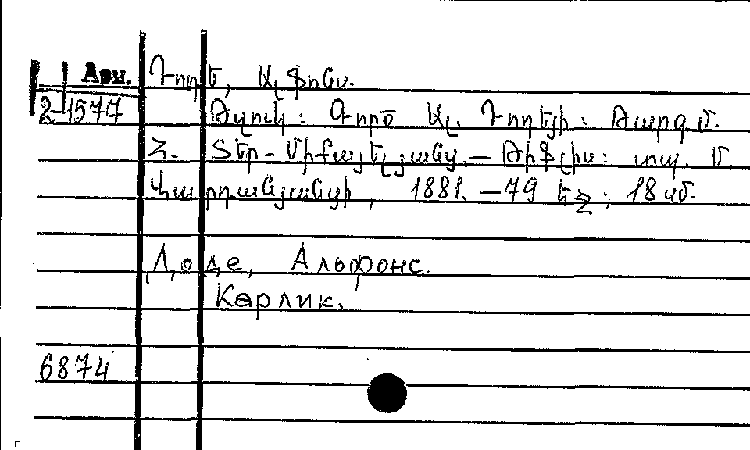 Арм. Դոդե, Ալֆոնս.
2-1577 Թզուկ: Գործ Ալ. Դոդեյի: Թարգմ.
Հ. Տեր-Միքայելյանց.—Թիֆլիս: տպ. Մ.
Վարդանյանցի, 1881.—79 եջ; 18սմ.
Доде, Альфонс.
Карлик.
6874